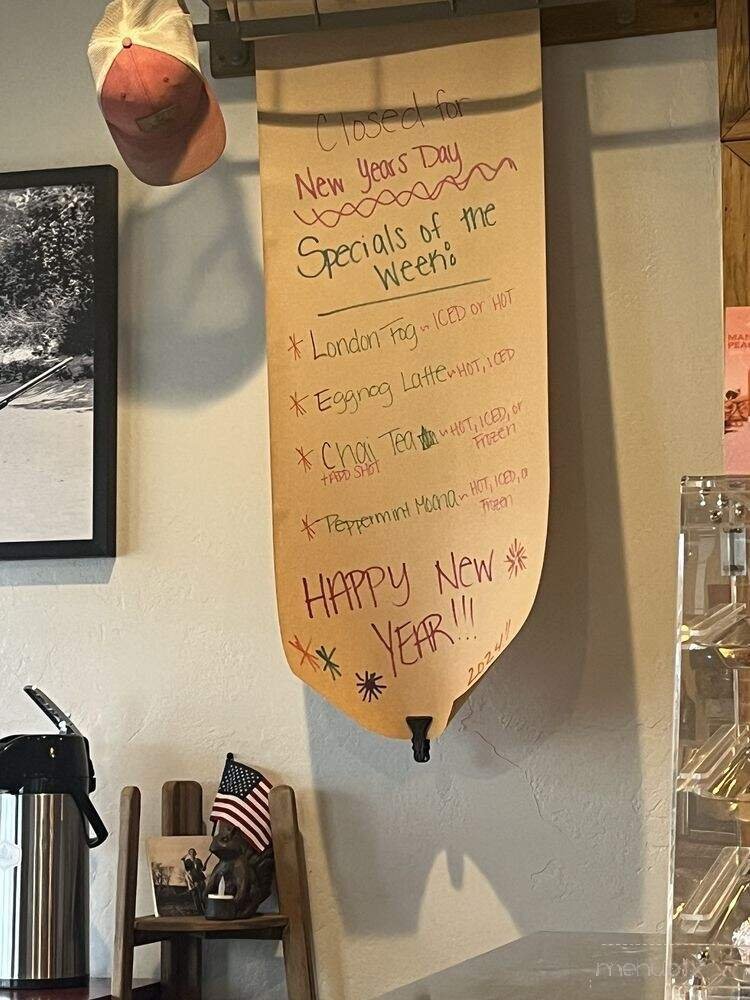 Closed for
New Years Day
Specials of the
Week:
* London Fog ~ ICED or HOT
* Eggnog Latte ~ HOT, ICED
* Chai Tea ~ HOT, ICED, or
+ ADD SHOT
Frozen
* Peppermint Mocha ~ HOT, ICED, or
Frozen
HAPPY NEW
YEAR!!!
2024!!
MAN
PEA
menupix